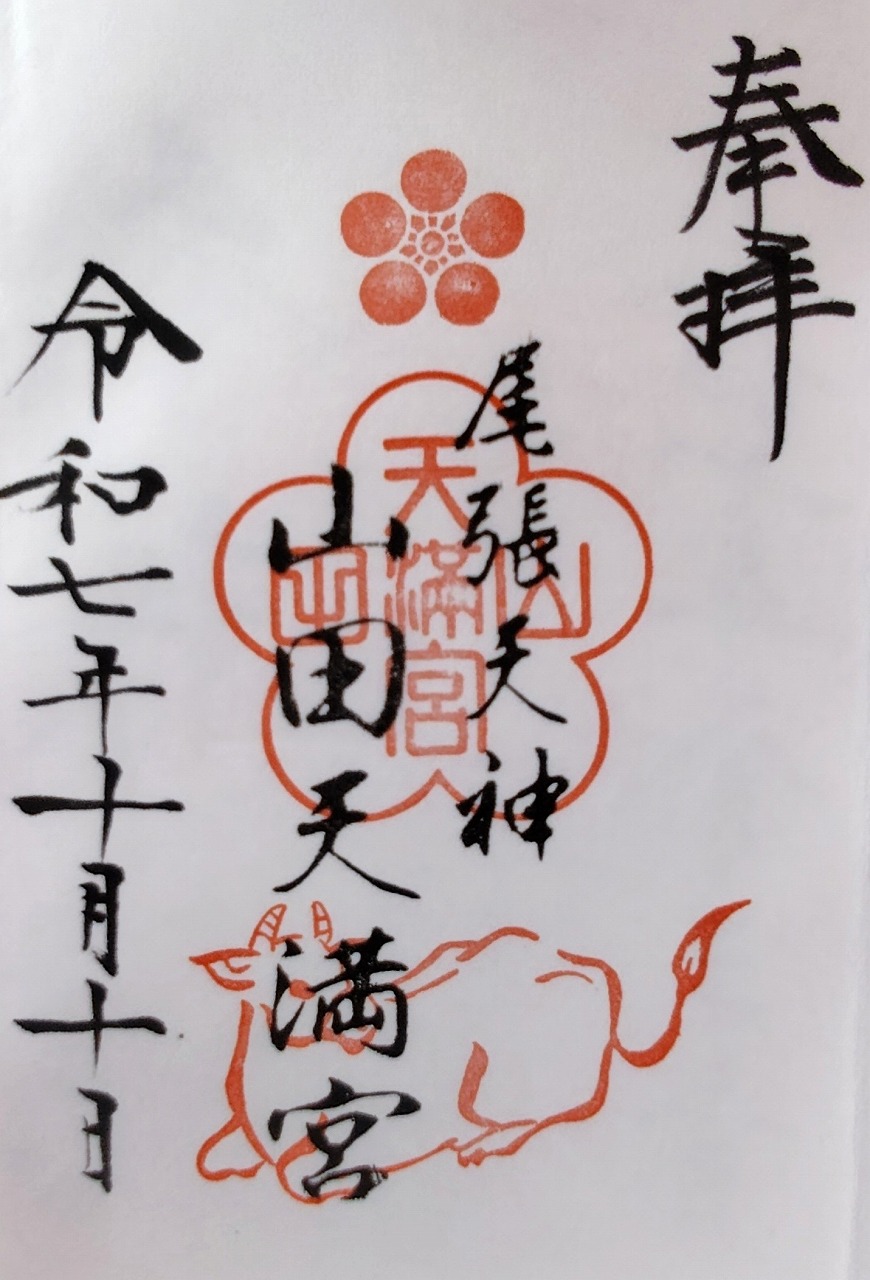 奉拝
尾張天神
山田天満宮
令和七年十月十日
山
天満宮
田